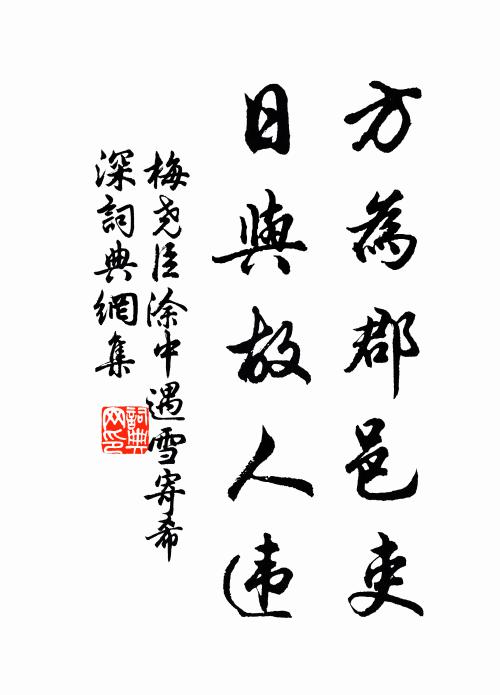 方為郡邑吏
日與故人违
梅尧臣涂中遇雪寄希
深詞典網集
詞典网印